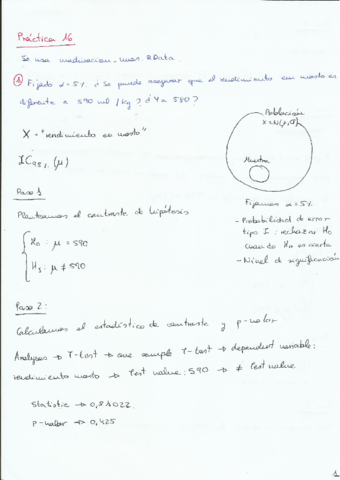 Práctica 16
Se usa maduracion_uvas.RData.
① Fijado α=5% ¿Se puede asegurar que el rendimiento en mosto es
diferente a 590 ml/kg? ¿Y a 580?
Población
X ~ N(μ, σ)
X = "rendimiento en mosto"
IC95% (μ)
Muestra
Paso 1
Planteamos el contraste de hipótesis
H0: μ = 590
H1: μ ≠ 590
Fijamos α = 5%
- Probabilidad de error
tipo I: rechazar H0
cuando H0 es cierta
- Nivel de significación
Paso 2:
Calculamos el estadístico de contraste y p-valor
Analyses → T-test → one sample T-test → dependent variable:
rendimiento mosto → Test value: 590 → ≠ Test value
Statistic → 0,81022
p-valor → 0,425
1